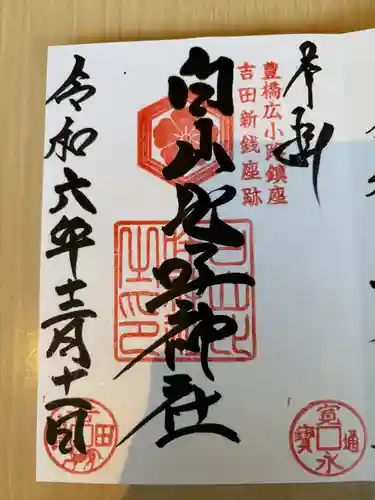 奉拝
豊橋広小路鎮座
吉田新銭座跡
白山比咩神社
令和六年十二月十一日
寛永通寳